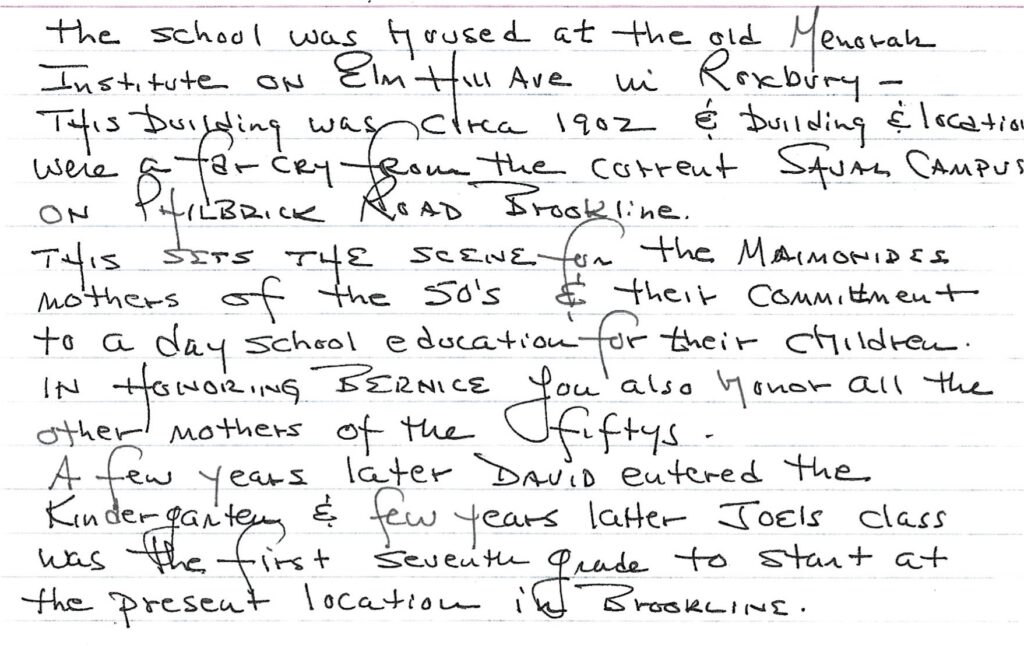 the school was housed at the old Menorah
Institute on Elm Hill Ave in Roxbury –
This building was circa 1902 & building & location
were a far cry from the current SAVAL CAMPUS
ON PHILBRICK ROAD Brookline.
THIS SETS THE SCENE for the MAIMONIDES
mothers of the 50's & their committment
to a day school education for their children.
IN HONORING BERNICE you also honor all the
other mothers of the fiftys.
A few years later DAVID entered the
Kindergarten & few years latter JOELS class
was the first seventh grade to start at
the present location in BROOKLINE.